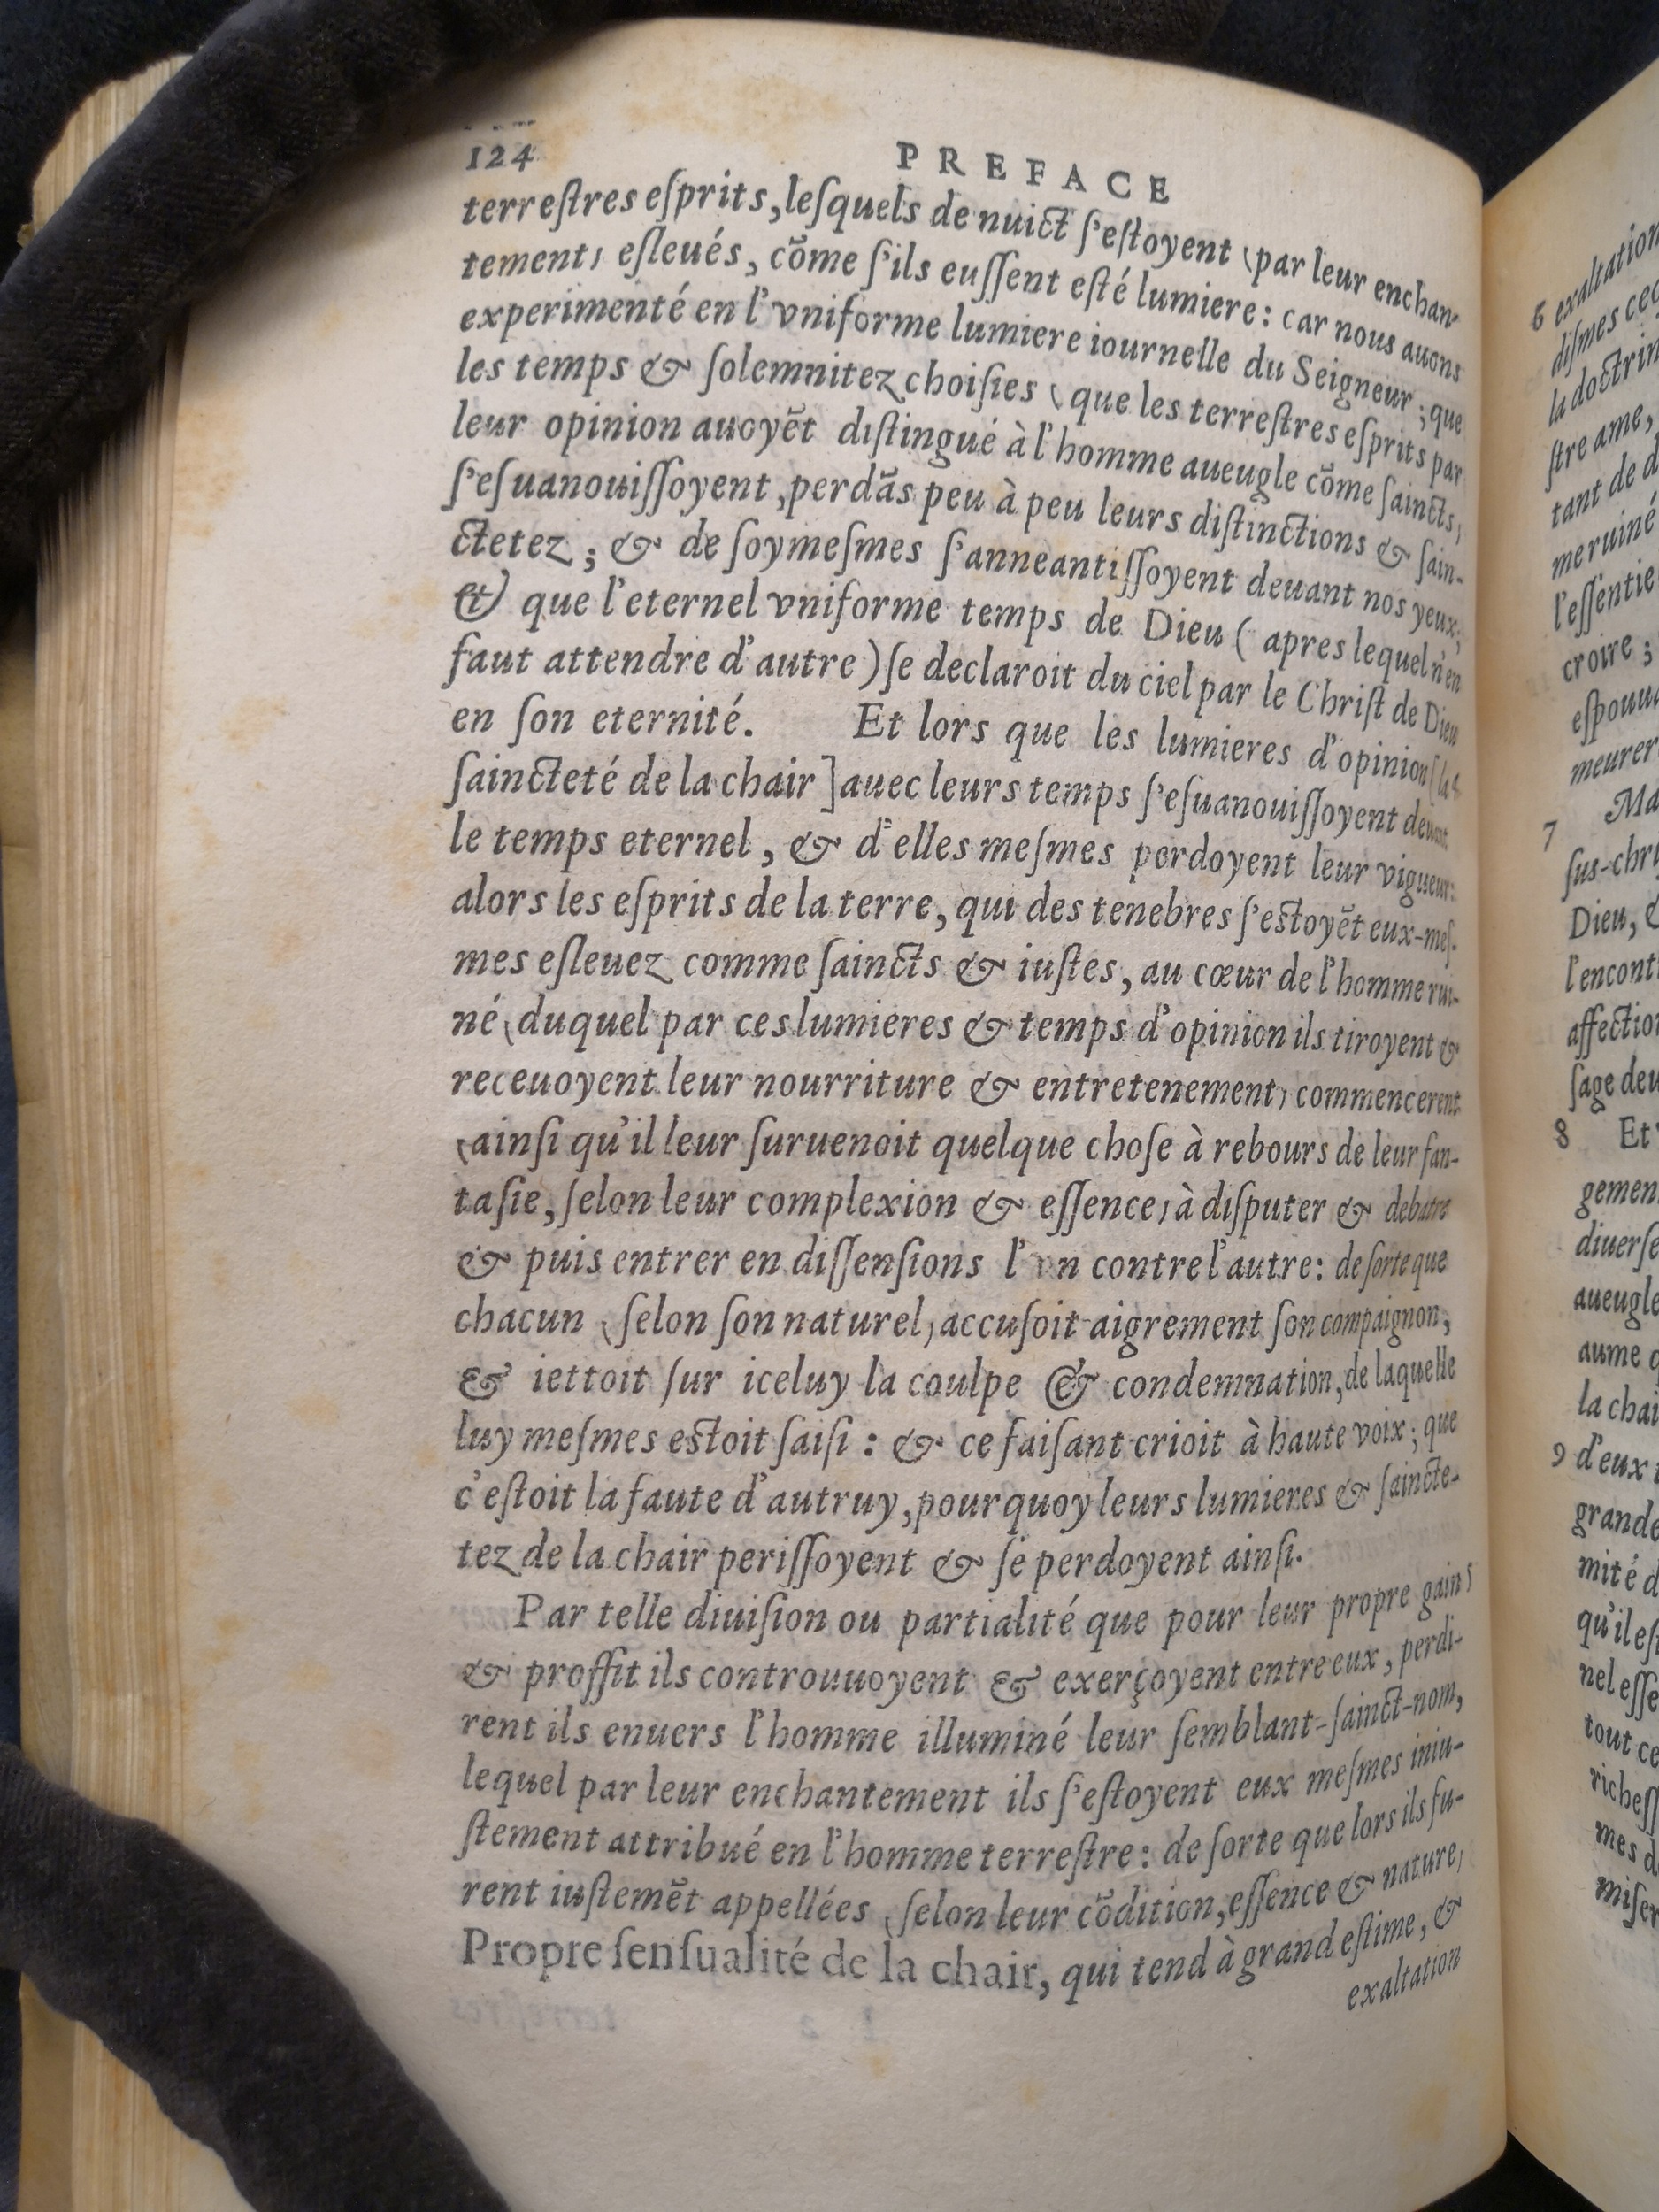 124 PREFACE
terreſtres eſprits, leſquels de nuict ſ'eſtoyent (par leur enchan-
tement) eſleués, cõme ſ'ils euſſent eſté lumiere: car nous auons
experimenté en l'vniforme lumiere iournelle du Seigneur; que
les temps & ſolemnitez choiſies (que les terreſtres eſprits par
leur opinion auoyẽt diſtingué à l'homme aueugle cõme ſaincts)
ſ'eſuanouiſſoyent, perdãs peu à peu leurs diſtinctions & ſain-
ctetez; & de ſoymeſmes ſ'anneantiſſoyent deuant nos yeux;
& que l'eternel vniforme temps de Dieu (apres lequel n'en
faut attendre d'autre) ſe declaroit du ciel par le Chriſt de Dieu
en ſon eternité. Et lors que les lumieres d'opinion [la
ſaincteté de la chair] auec leurs temps ſ'eſuanouiſſoyent deuant
le temps eternel, & d'elles meſmes perdoyent leur vigueur:
alors les eſprits de la terre, qui des tenebres ſ'eſtoyẽt eux-meſ-
mes eſleuez comme ſaincts & iuſtes, au cœur de l'homme rui-
né (duquel par ces lumieres & temps d'opinion ils tiroyent &
receuoyent leur nourriture & entretenement) commencerent
(ainſi qu'il leur ſuruenoit quelque choſe à rebours de leur fan-
taſie, ſelon leur complexion & eſſence) à diſputer & debatre
& puis entrer en diſſenſions l'vn contre l'autre: de ſorte que
chacun (ſelon ſon naturel) accuſoit aigrement ſon compaignon,
& iettoit ſur iceluy la coulpe & condemnation, de laquelle
luy meſmes eſtoit ſaiſi: & ce faiſant crioit à haute voix; que
c'eſtoit la faute d'autruy, pourquoy leurs lumieres & ſaincte-
tez de la chair periſſoyent & ſe perdoyent ainſi.
Par telle diuiſion ou partialité que pour leur propre gain
& proffit ils controuuoyent & exerçoyent entre eux, perdi-
rent ils enuers l'homme illuminé leur ſemblant-ſainct-nom,
lequel par leur enchantement ils ſ'eſtoyent eux meſmes iniu-
ſtement attribué en l'homme terreſtre: de ſorte que lors ils fu-
rent iuſtemẽt appellées (ſelon leur cõdition, eſſence & nature)
Propre ſenſualité de la chair, qui tend à grand eſtime, &
exaltation
6 exaltation
diſmes
la doctrin
ſtre ame,
tant de d
me ruiné
l'eſſentie
croire;
eſpouu
meurer
7 Ma
ſus-chr
Dieu,
l'encont
affectio
ſage deu
8 Et
gemen
diuerſe
aueugle
aume
la chai
9 d'eux
grande
mité d
qu'il eſ
nel eſſe
tout ce
richeſſ
mes d
miſer